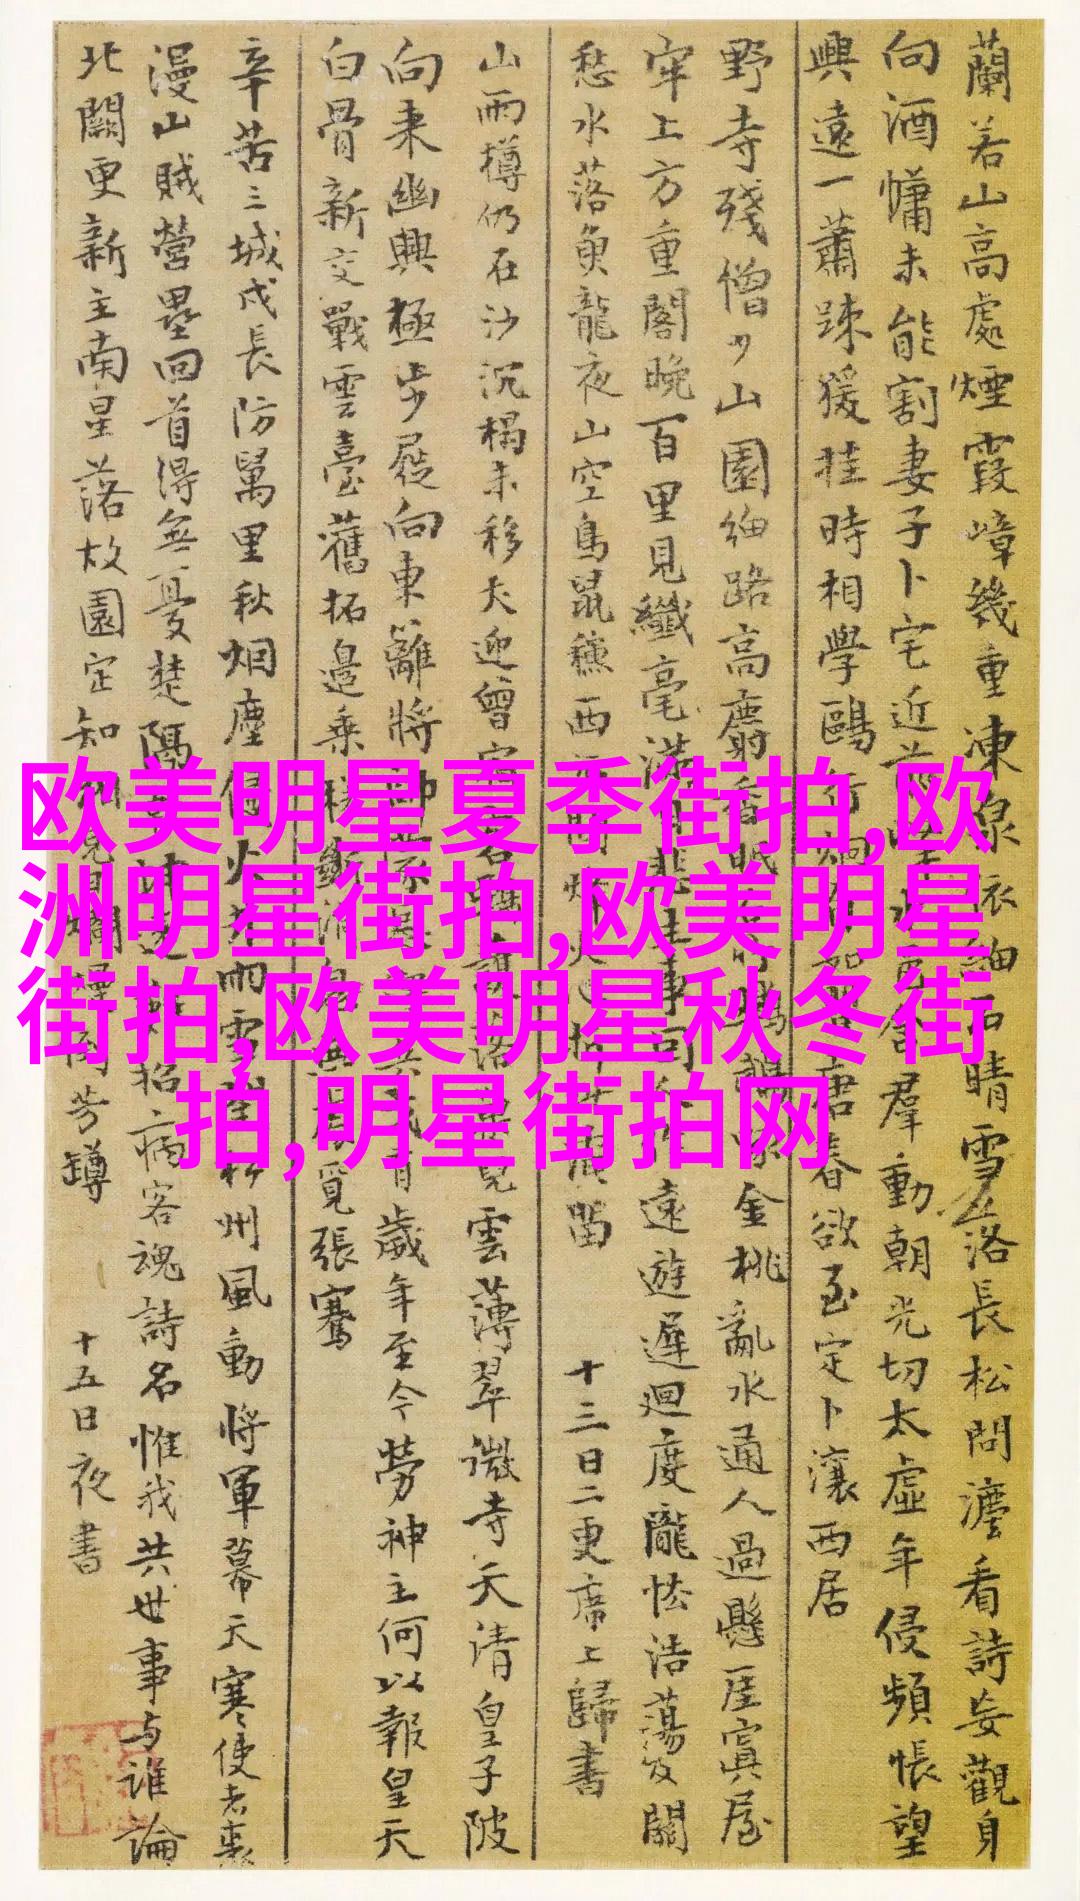 蘭若山高處煙霞嶂幾重凍泉依細石晴雪落長松問灋看詩妄觀身
向酒慵未能割妻子卜宅近前 群動朝光切太虛年侵頻悵望
興遠一蕭疎猨挂時相學鷗行炯自如 唐春欲至定卜瀼西居
野寺殘僧少山園細路高麝香眠 鸚鵡 金桃亂水通人過懸崖寘屋
牢上方重閣晚百里見纖毫滿目悲生事因 遠遊遲迴度隴怯浩蕩及關
愁水落魚龍夜山空鳥鼠穐西 問烽火心折 淹留 十三日二更席上歸書
山雨樽仍在沙沉榻未移犬迎曾宿 落 見雲薄翠微寺天清皇子陂
向來幽興極步屧向東籬將 帥 有歲年至今勞神主何以報皇天
白骨新交戰雲臺舊拓邊乘槎斷消息無 覓張騫
辛苦三城戍長防萬里秋烟塵侵火 雨雪 松州風動將軍幕天寒使者裘
漫山賊營壘回首得無憂楚隔 招病客魂詩名惟我共世事与誰論
北闕更新主南星落故園定知 見日爛 倒芳罇 十五日夜書
欧美明星夏季街拍,欧
洲明星街拍,欧美明星
街拍,欧美明星秋冬街
拍,明星街拍网